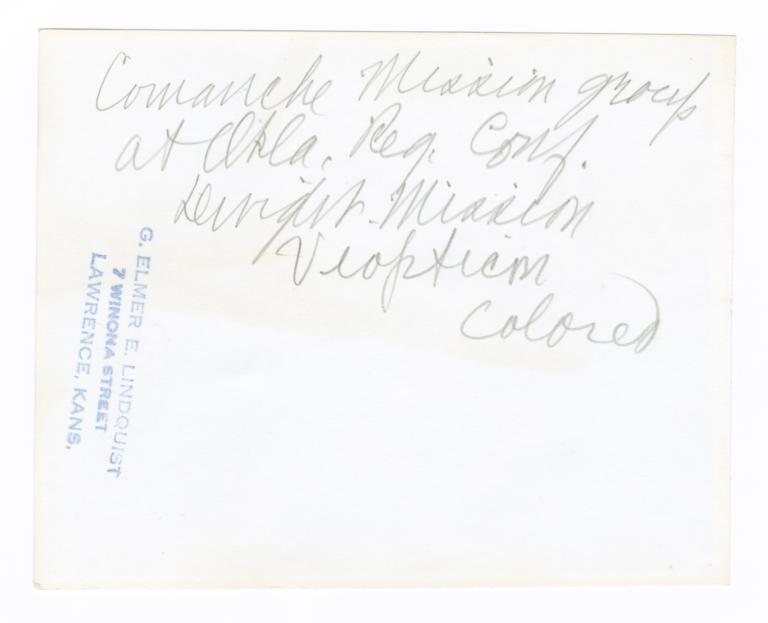 Comanche Mission group
at Okla. Reg. Conf.
Dwight Mission
Viopticon
colored
G. ELMER E. LINDQUIST
7 WINONA STREET
LAWRENCE, KANS.